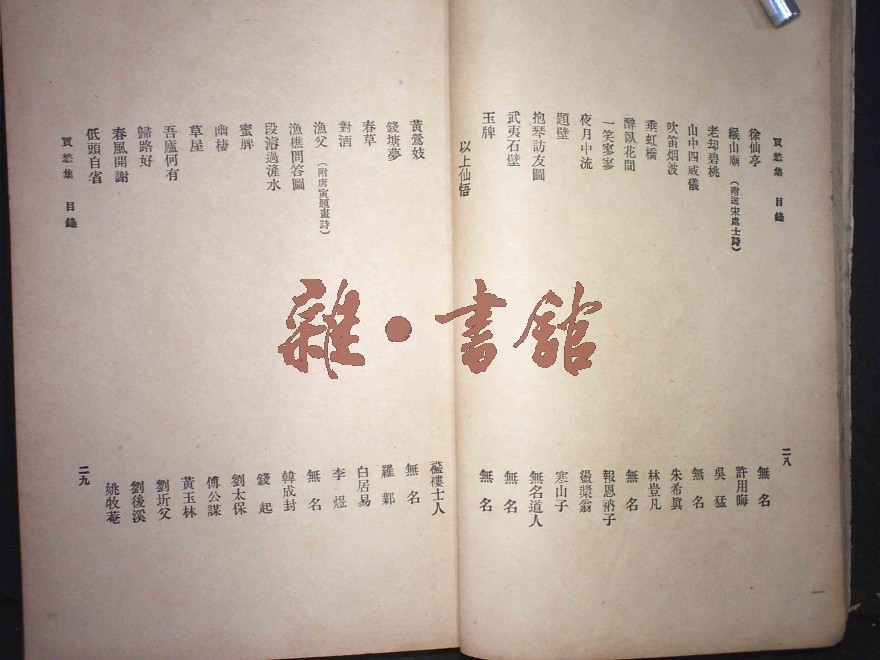 買愁集　目錄
二八
徐仙亭　無名
緱山廟（附送宋處士詩）　許用晦
老却碧桃　吳猛
山中四威儀　無名
吹笛烟波　朱希眞
垂虹橋　林豈凡
醉臥花間　無名
一笑寥寥　報恩衲子
夜月中流　盪槳翁
題壁　寒山子
抱琴訪友圖　無名道人
武夷石壁　無名
玉牌　無名
以上仙悟
黃鶯妓　襤褸士人
錢塘夢　無名
春草　羅鄴
對酒　白居易
漁父（附唐寅題畫詩）　李煜
漁樵問答圖　無名
段過滻水　韓成封
蜜脾　錢起
幽棲　劉太保
草屋　傅公謀
吾廬何有　黃玉林
歸路好　劉圻父
春風開謝　劉後溪
低頭自省　姚牧菴
買愁集　目錄
二九
雜·書館